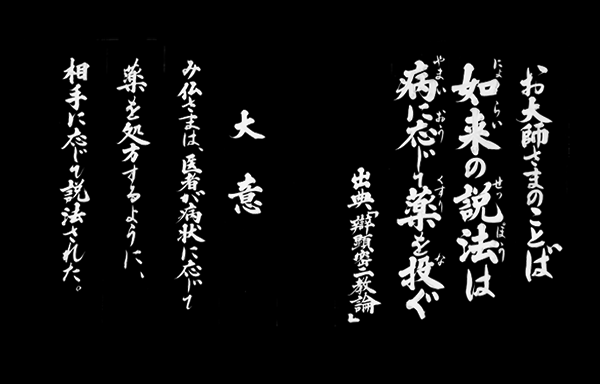 お大師さまのことば
如来の説法は
病に応じて薬を投ぐ
出典「辯顕密二教論」
大意
み仏さまは、医者が病状に応じて
薬を処方するように、
相手に応じて説法された。